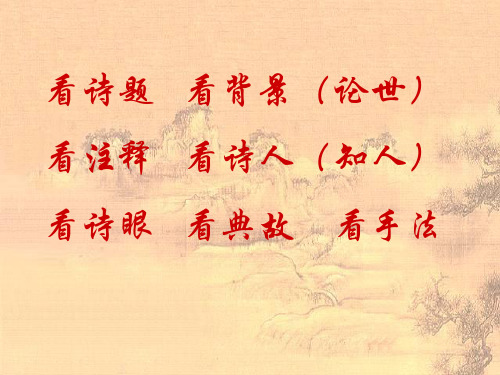 看诗题 看背景（论世）
看注释 看诗人（知人）
看诗眼 看典故 看手法